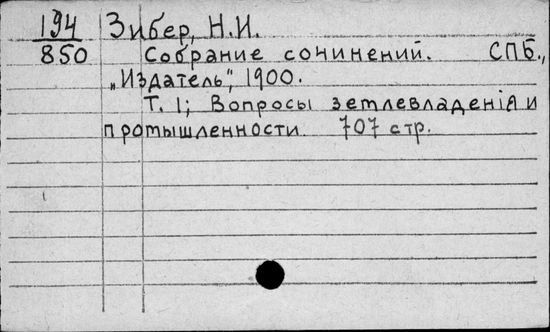 194 Зибер, Н.И.
850 Собрание сочинений. СПБ.,
„Издатель", 1900.
Т. 1; Вопросы зетлевладенiя и
протышленности 707 стр.